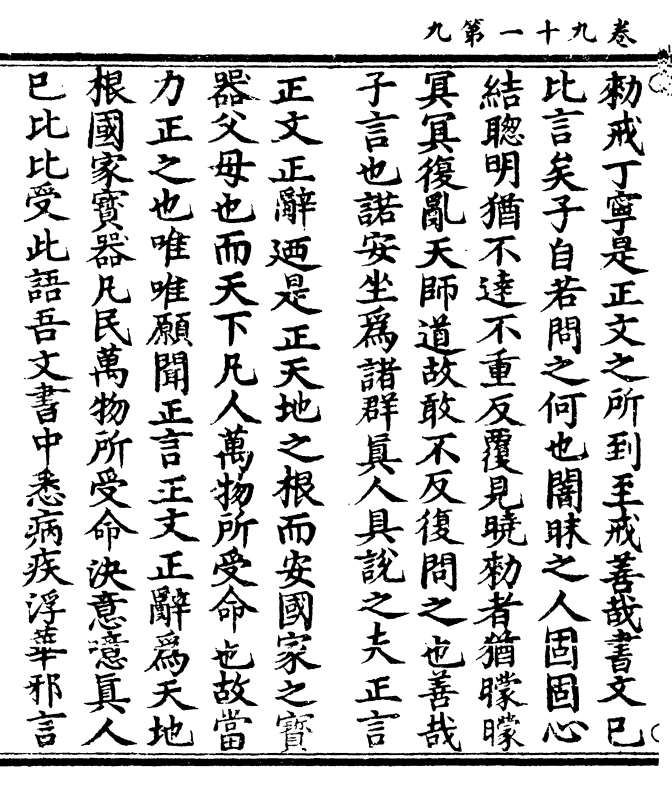 卷九十一第九
勑戒丁寧是正文之所到至戒善哉書文已
比言矣子自若問之何也闇昧之人固固心
結聰明猶不達不重反覆見曉勑者猶曚曚
冥冥復亂天師道故敢不反復問之也善哉
子言也諾安坐爲諸群眞人具說之夫正言
正文正辭迺是正天地之根而安國家之寶
器父母也而天下凡人萬物所受命也故當
力正之也唯唯願聞正言正文正辭爲天地
根國家寶器凡民萬物所受命決意噫眞人
已比比受此語吾文書中悉病疾浮華邪言